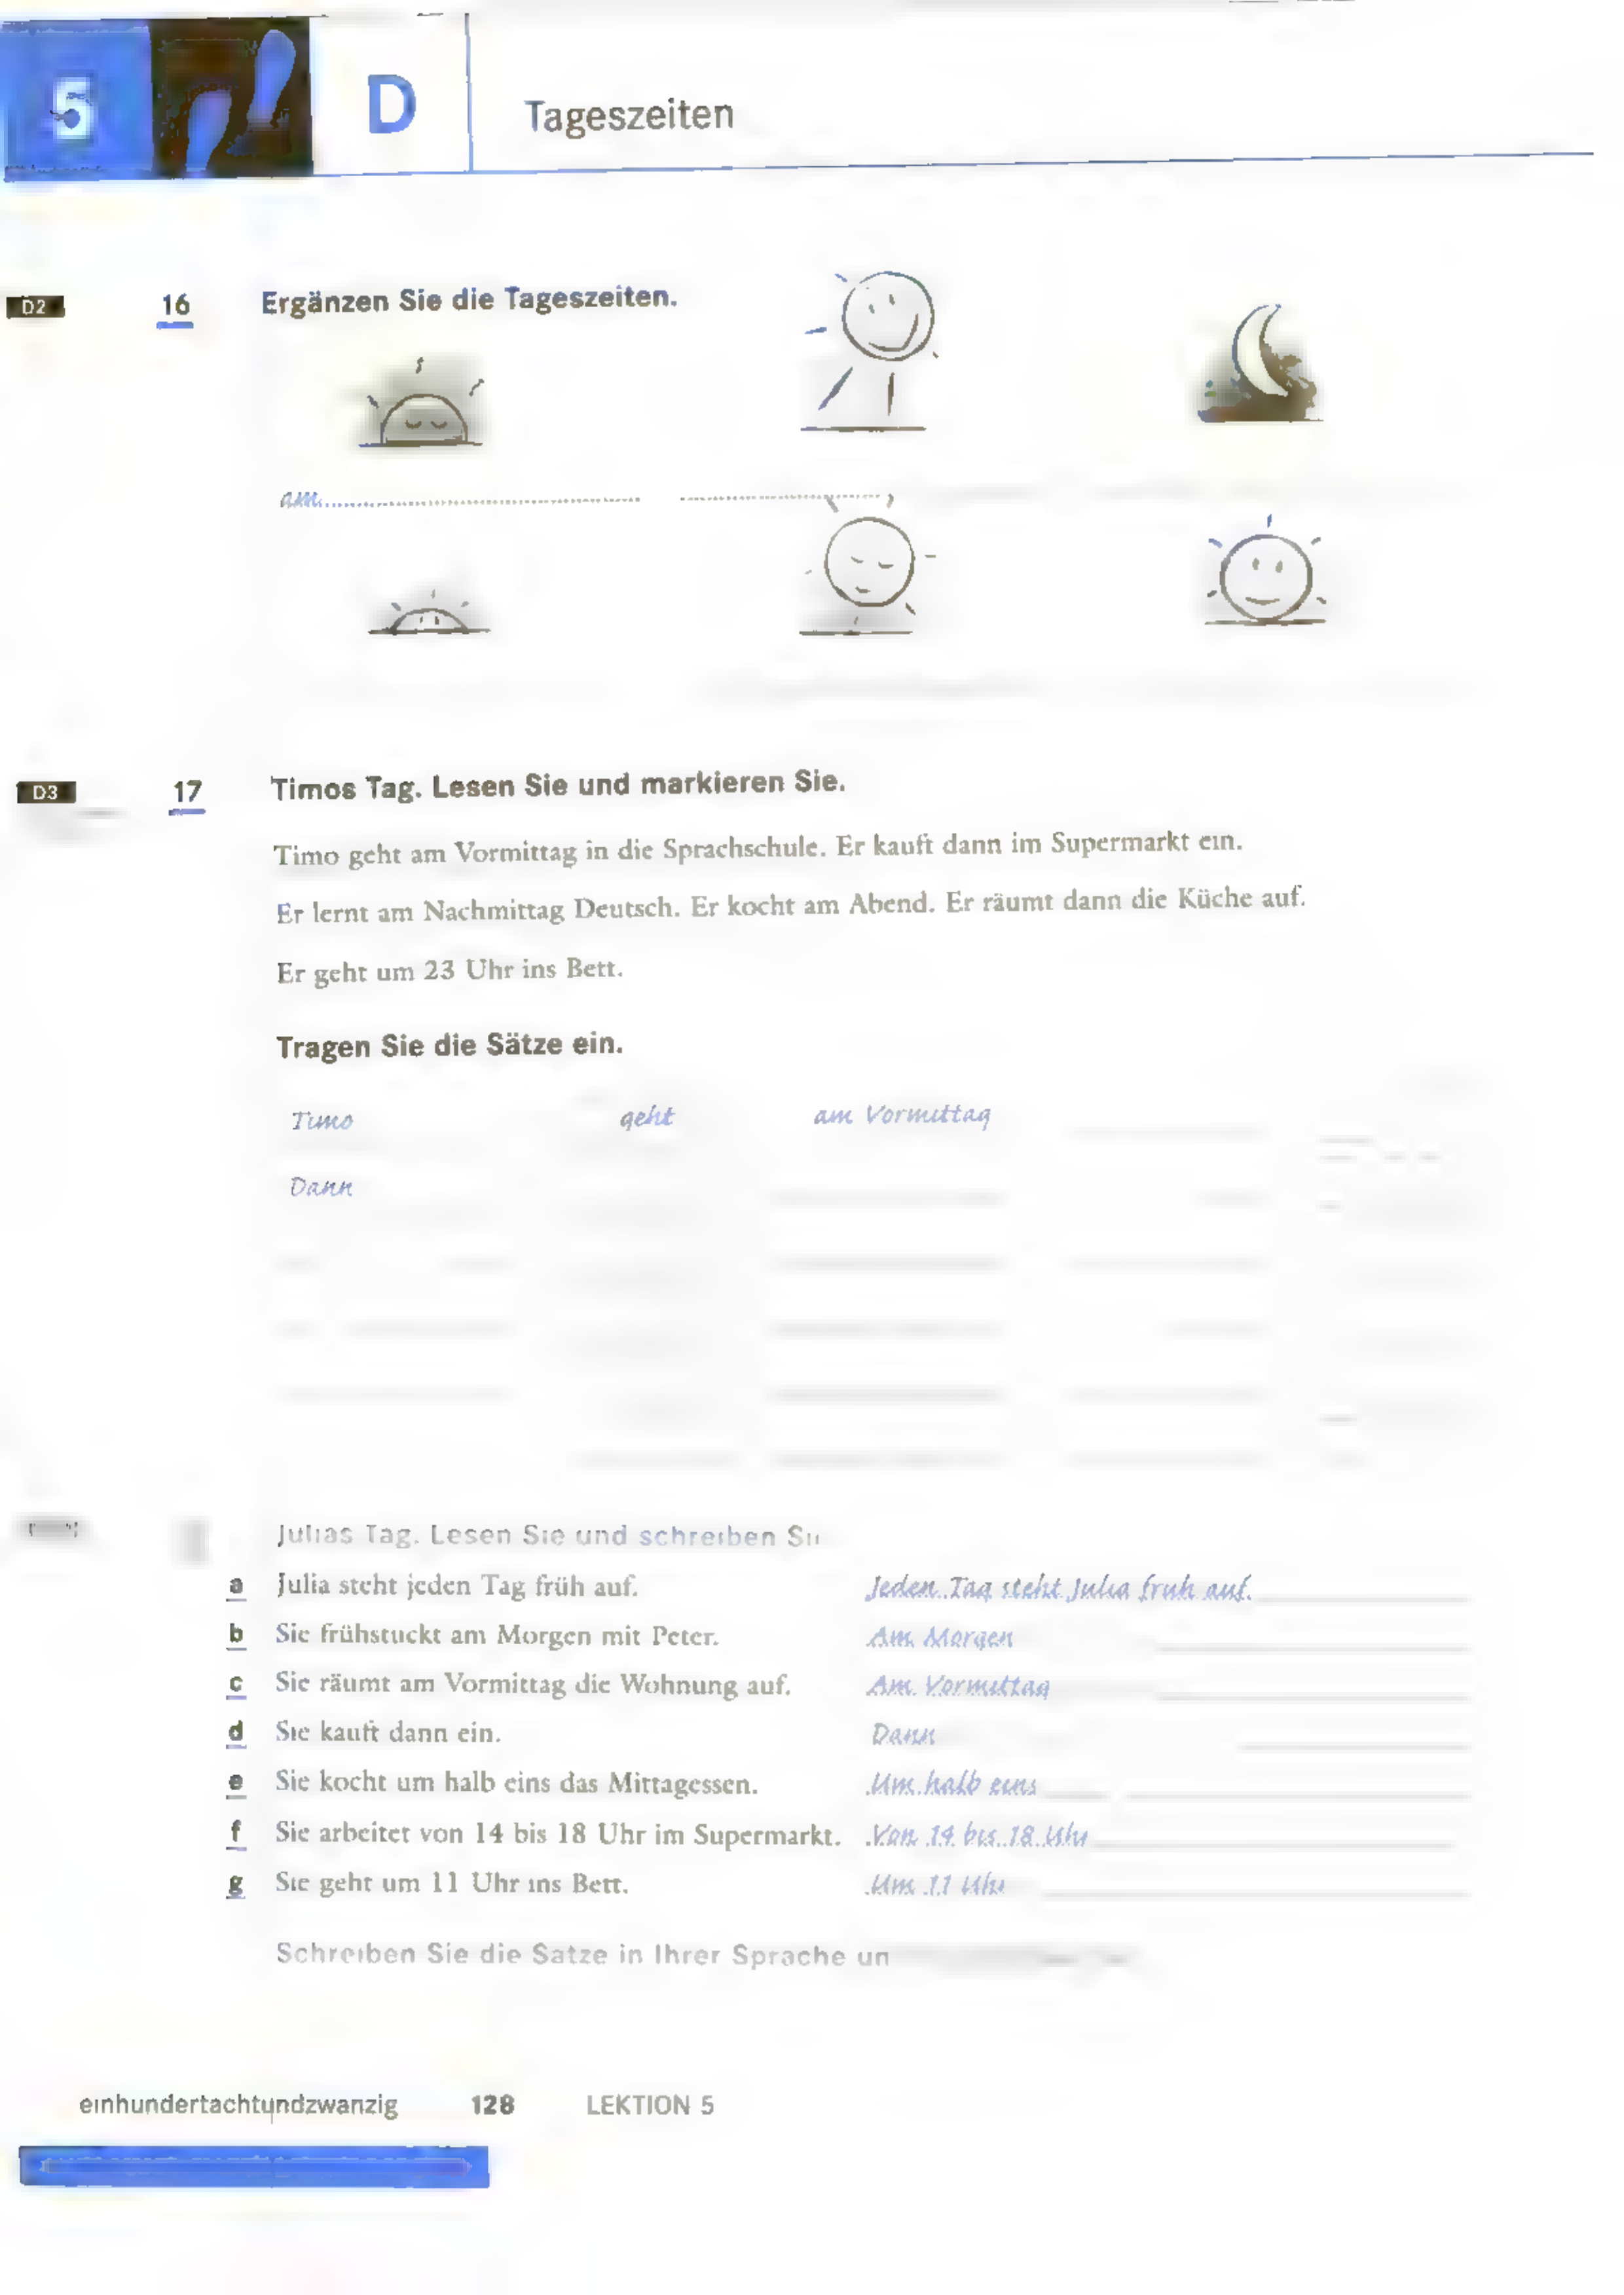 5 D Tageszeiten
D2 16 Ergänzen Sie die Tageszeiten.
am
D3 17 Timos Tag. Lesen Sie und markieren Sie.
Timo geht am Vormittag in die Sprachschule. Er kauft dann im Supermarkt ein.
Er lernt am Nachmittag Deutsch. Er kocht am Abend. Er räumt dann die Küche auf.
Er geht um 23 Uhr ins Bett.
Tragen Sie die Sätze ein.
Timo geht am Vormittag
Dann
Julias Tag. Lesen Sie und schreiben
a Julia steht jeden Tag früh auf. Jeden Tag steht Julia früh auf.
b Sie frühstückt am Morgen mit Peter. Am Morgen
c Sie räumt am Vormittag die Wohnung auf. Am Vormittag
d Sie kauft dann ein. Dann
e Sie kocht um halb eins das Mittagessen. Um halb eins
f Sie arbeitet von 14 bis 18 Uhr im Supermarkt. Von 14 bis 18 Uhr
g Sie geht um 11 Uhr ins Bett. Um 11 Uhr
Schreiben Sie die Sätze in Ihrer Sprache
einhundertachtundzwanzig 128 LEKTION 5